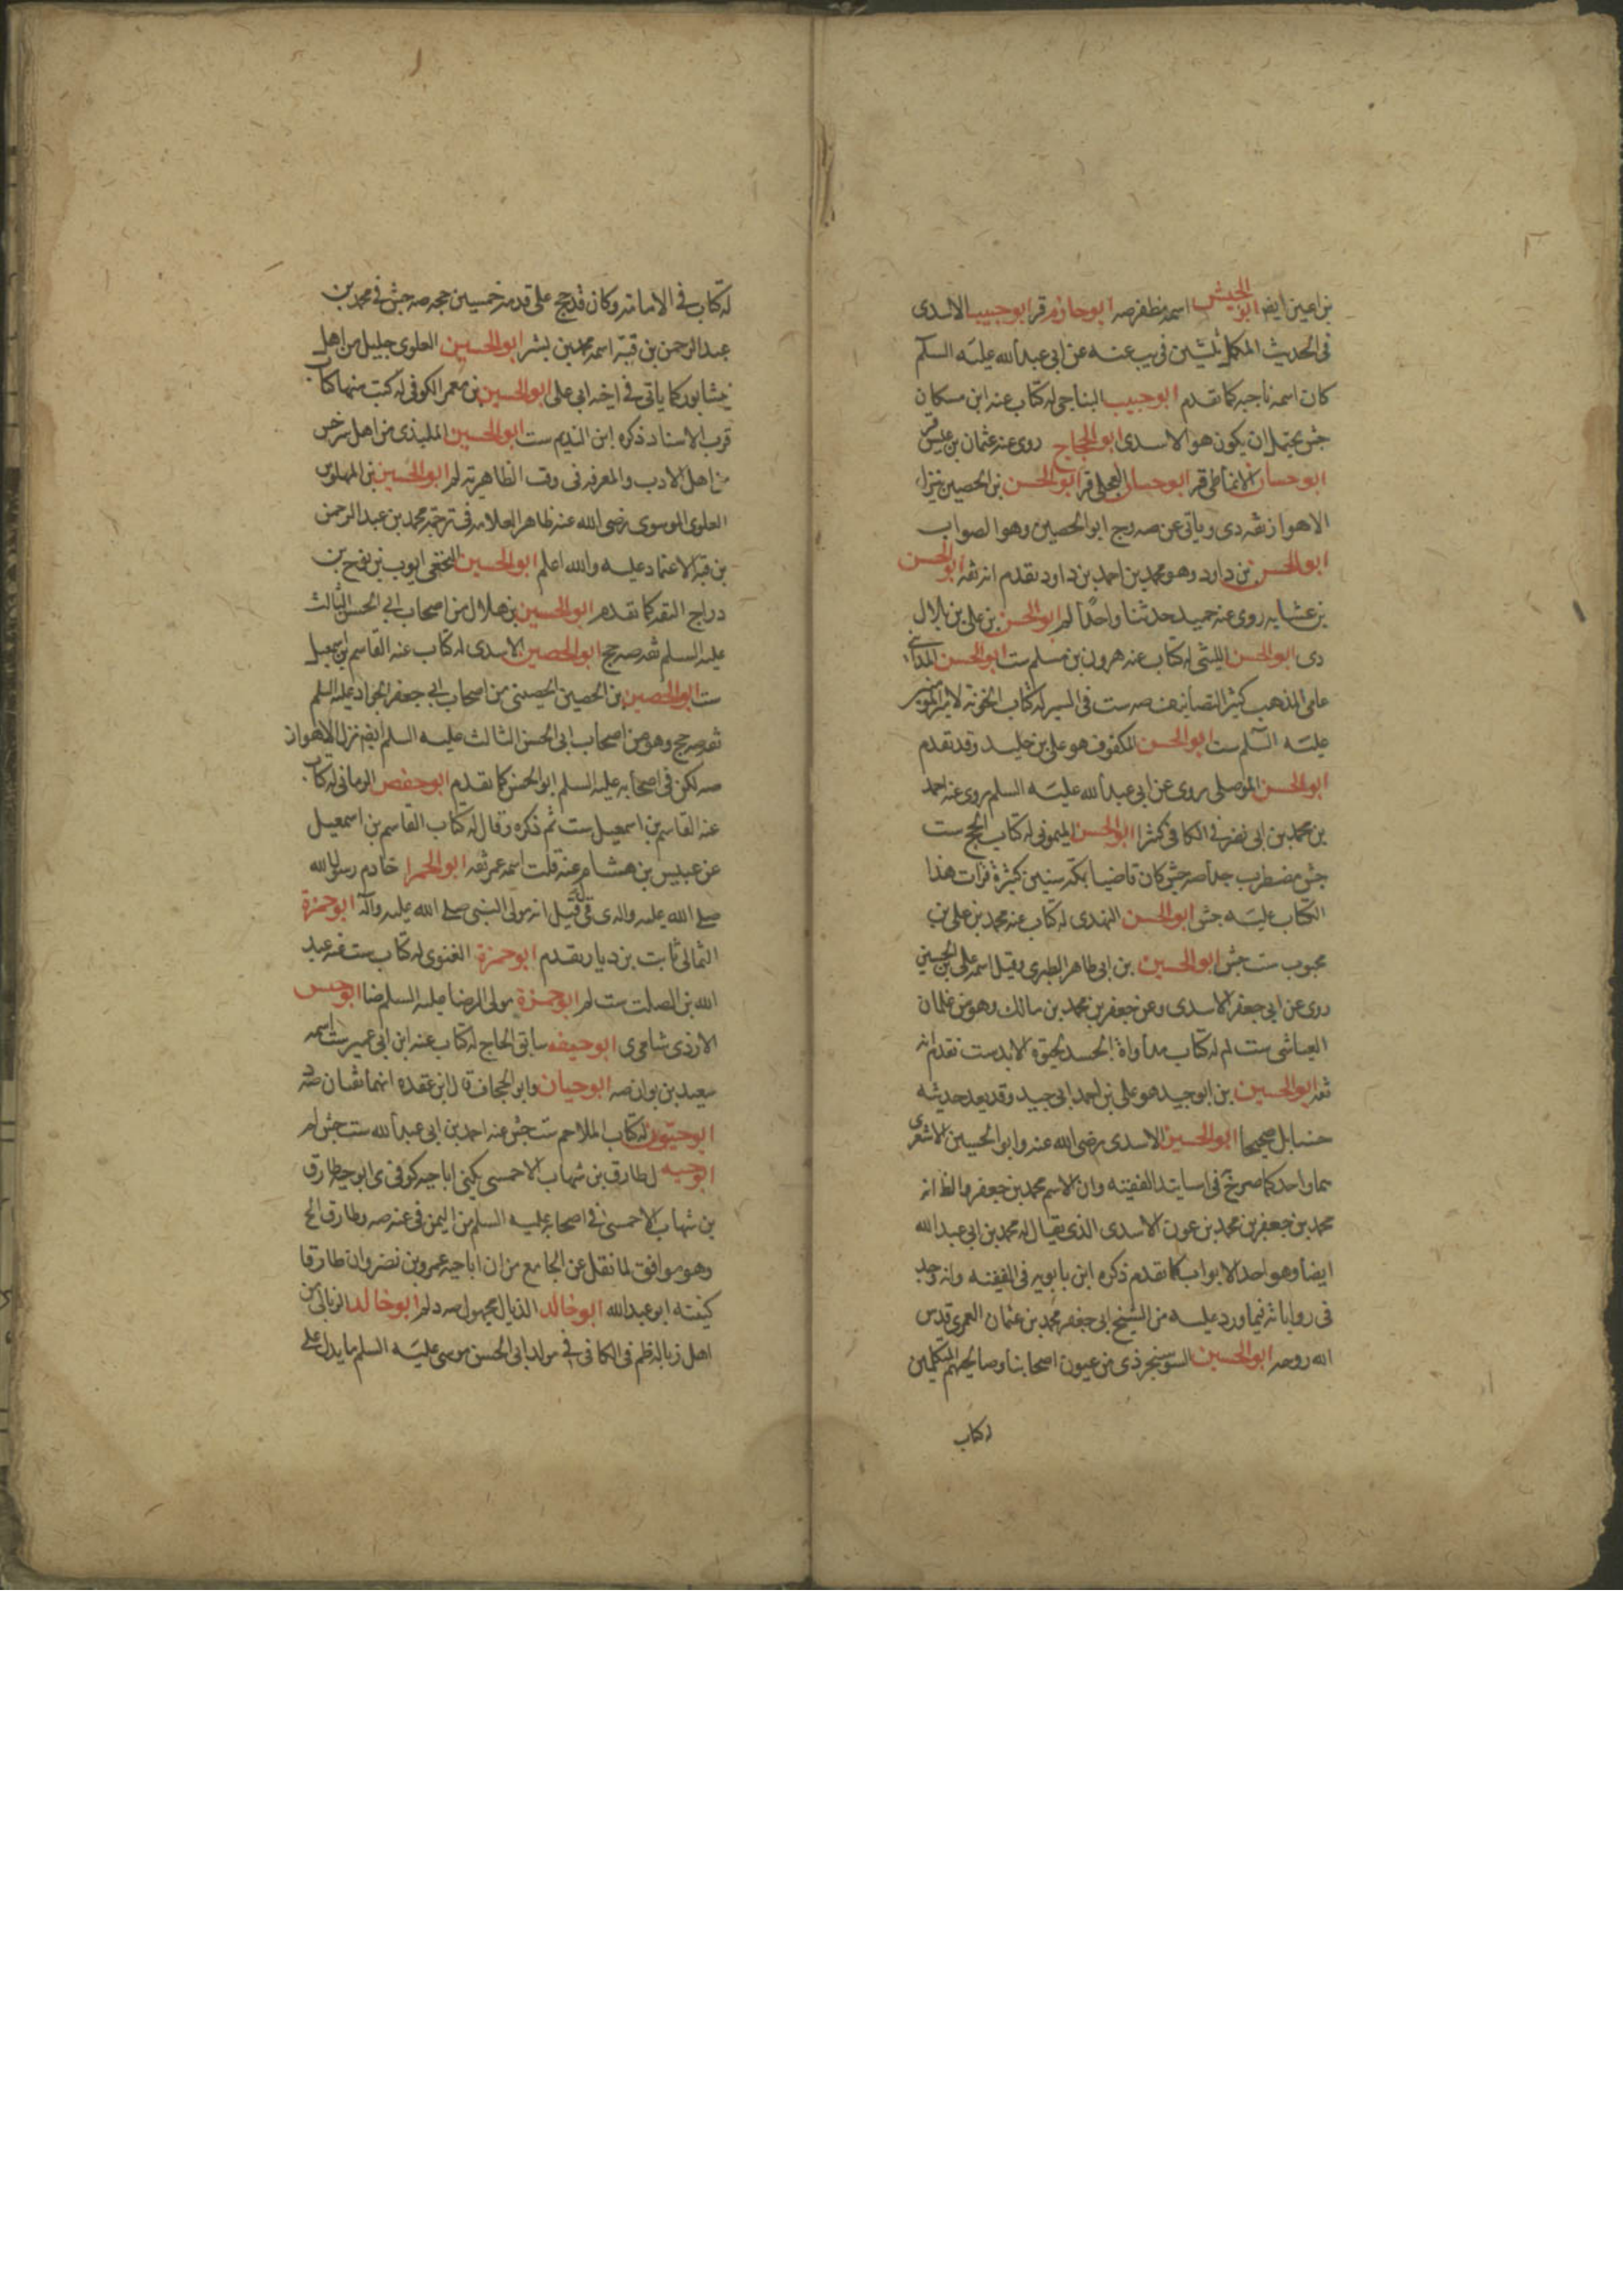 بن اعين ايضا ابو الجيش اسمه مظفر صه ابو حازم قر ابو حبيب الاسدى
فى الحديث المكمل ثلثين فى يب عنه عن ابى عبد الله عليه السلم
كان اسمه ناجيه كما تقدم ابو حبيب النباجى له كتاب عنه ابن مسكان
جش يحتمل ان يكون هو الاسدى ابو الحجاج روى عنه عثمان بن عيسى قر
ابو حسان الانماطى قر ابو حسان العجلى قر ابو الحسن بن الحصين نزل
الاهواز ثقه دى وياتى عن صه وجج ابو الحصين وهو الصواب
ابو الحسن بن داود وهو محمد بن احمد بن داود تقدم انه ثقه ابو الحسن
بن عشايه روى عنه حميد حديثا واحدا لم ابو الحسن بن على بن بلال
دى ابو الحسن الليثى له كتاب عنه هرون بن مسلم ست ابو الحسن المدائنى
عامى المذهب كثير التصانيف صه ست فى السير له كتاب الخونة لامير المؤمنين
عليه السلم ست ابو الحسن المكفوف هو على بن خليد وقد تقدم
ابو الحسن الموصلى روى عن ابى عبد الله عليه السلم روى عنه احمد
بن محمد بن ابى نصر فى الكافى كثيرا ابو الحسن الميمونى له كتاب الحج ست
جش مضطرب جدا صه جش كان قاضيا بمكة سنين كثيرة قرات هذا
الكتاب عليه جش ابو الحسن النهدى له كتاب عنه محمد بن على بن
محبوب ست جش ابو الحسين بن ابى طاهر الطبرى وقيل اسمه على بن الحسين
روى عن ابى جعفر الاسدى وعن جعفر بن محمد بن مالك وهو من غلمان
العياشى ست لم له كتاب مداواة الجسد لحيوة الابد ست تقدم انه
ثقه ابو الحسين بن ابو جيد هو على بن احمد ابى جيد وقد يعد حديثه
حسنا بل صحيحا ابو الحسين الاسدى رضى الله عنه وابو الحسين الاشعرى
هما واحد كما صرح فى اسانيد الفقيه وان الاسم محمد بن جعفر والظ انه
محمد بن جعفر بن محمد بن عون الاسدى الذى يقال له محمد بن ابى عبد الله
ايضا وهو احد الابواب كما تقدم ذكره ابن بابويه فى الفقيه وانه وجد
فى رواياته فيما ورد عليه من الشيخ ابى جعفر محمد بن عثمان العمرى قدس
الله روحه ابو الحسين السوسنجردى من عيون اصحابنا وصالحيهم المتكلمين
له كتاب
له كتاب فى الامامة وكان قد حج على قدمه خمسين حجه صه جش فى محمد بن
عبد الرحمن بن قبة اسمه محمد بن بشر ابو الحسين العلوى جليل من اهل
نيشابور كما ياتى فى اخيه ابى على ابو الحسين بن معمر الكوفى له كتب منها كتاب
قرب الاسناد ذكره ابن النديم ست ابو الحسين الملبذى من اهل سرخس
من اهل الادب والمعرفه فى وقت الطاهرية لم ابو الحسين بن المهلوس
العلوى الموسوى رضى الله عنه ظاهر العلامه فى ترجمة محمد بن عبد الرحمن
بن قبة الاعتماد عليه والله اعلم ابو الحسين النخعى ايوب بن نوح بن
دراج الثقه كما تقدم ابو الحسين بن هلال من اصحاب ابى الحسن الثالث
عليه السلم ثقه صه جج ابو الحصين الاسدى له كتاب عنه القاسم بن اسمعيل
ست ابو الحصين بن الحصين الحصينى من اصحاب ابى جعفر الجواد عليه السلم
ثقه صه جج وهو من اصحاب ابى الحسن الثالث عليه السلم ايضا نزل الاهواز
صه لكن فى اصحابه عليه السلم ابو الحسن كما تقدم ابو حفص الرمانى له كتاب
عنه القاسم بن اسمعيل ست ثم ذكره وقال له كتاب القاسم بن اسمعيل
عن عبيس بن هشام عنه قلت اسمه عمر ثقه ابو الحمرا خادم رسول الله
صلى الله عليه واله ى قى قيل انه مولى النبى صلى الله عليه وآله ابو حمزة
الثمالى ثابت بن دينار تقدم ابو حمزة الغنوى له كتاب ست عنه عبد
الله بن الصلت ست لم ابو حمزة مولى الرضا عليه السلم ضا ابو حبس
الازدى شامى ى ابو حنيفه سابق الحاج له كتاب عنه ابن ابى عمير ست اسمه
سعيد بن بيان صه ابو حيان وابو الجحاف قال ابن عقده انهما ثقتان صه د
ابو حيون له كتاب الملاحم ست جش عنه احمد بن ابى عبد الله ست جش لم
ابو حيه لطارق بن شهاب الاحمسى يكنى ابا حيه كوفى ى ابو حيه طارق
بن شهاب الاحمسى فى اصحابه عليه السلم من اليمن فى عنه صه وطارق الخ
وهو موافق لما نقل عن الجامع من ان ابا حيه عمرو بن نصر وان طارقا
كنيته ابو عبد الله ابو خالد الذيال مجهول صه د لم ابو خالد الزبالى من
اهل زباله ظم فى الكافى فى مولد ابى الحسن موسى عليه السلم ما يدل على